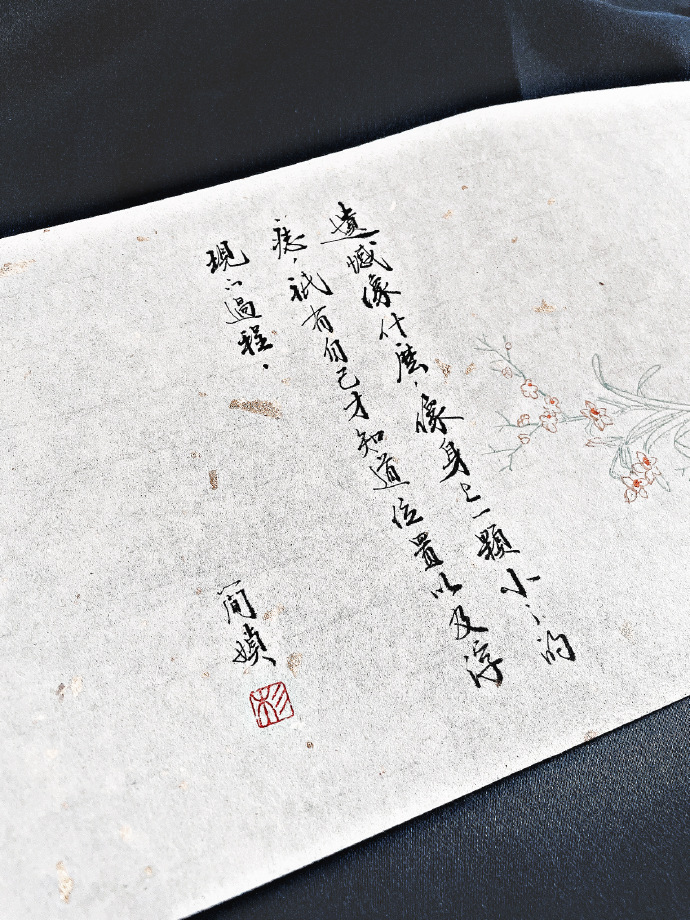 遺憾像什麼，像身上一顆小小的
痣，祇有自己才知道位置以及浮
現的過程。
簡媜
杉